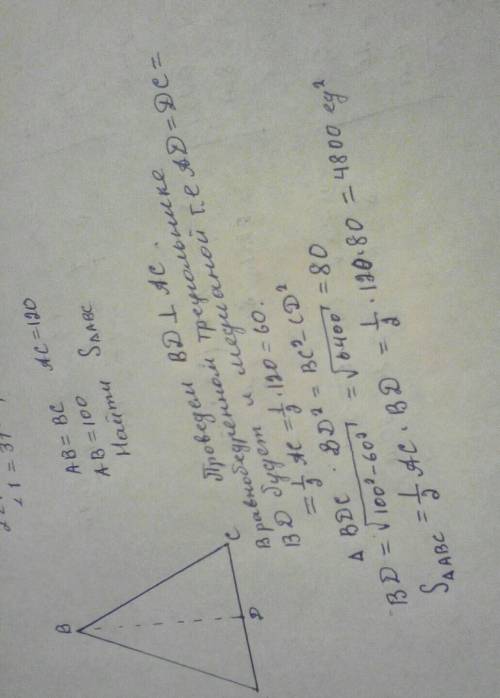 AB = BC AC = 120
AB = 100
Найти S△ABC
B
C
D
Проведем BD ⊥ AC.
В равнобедренном треугольнике
BD будет и медианой т.е AD = DC =
= 1/2 AC = 1/2 · 120 = 60.
△ BDC · BD² = BC² - CD²
BD = √100² - 60² = √6400 = 80
S△ABC = 1/2 AC · BD = 1/2 · 120 · 80 = 4800 ед²